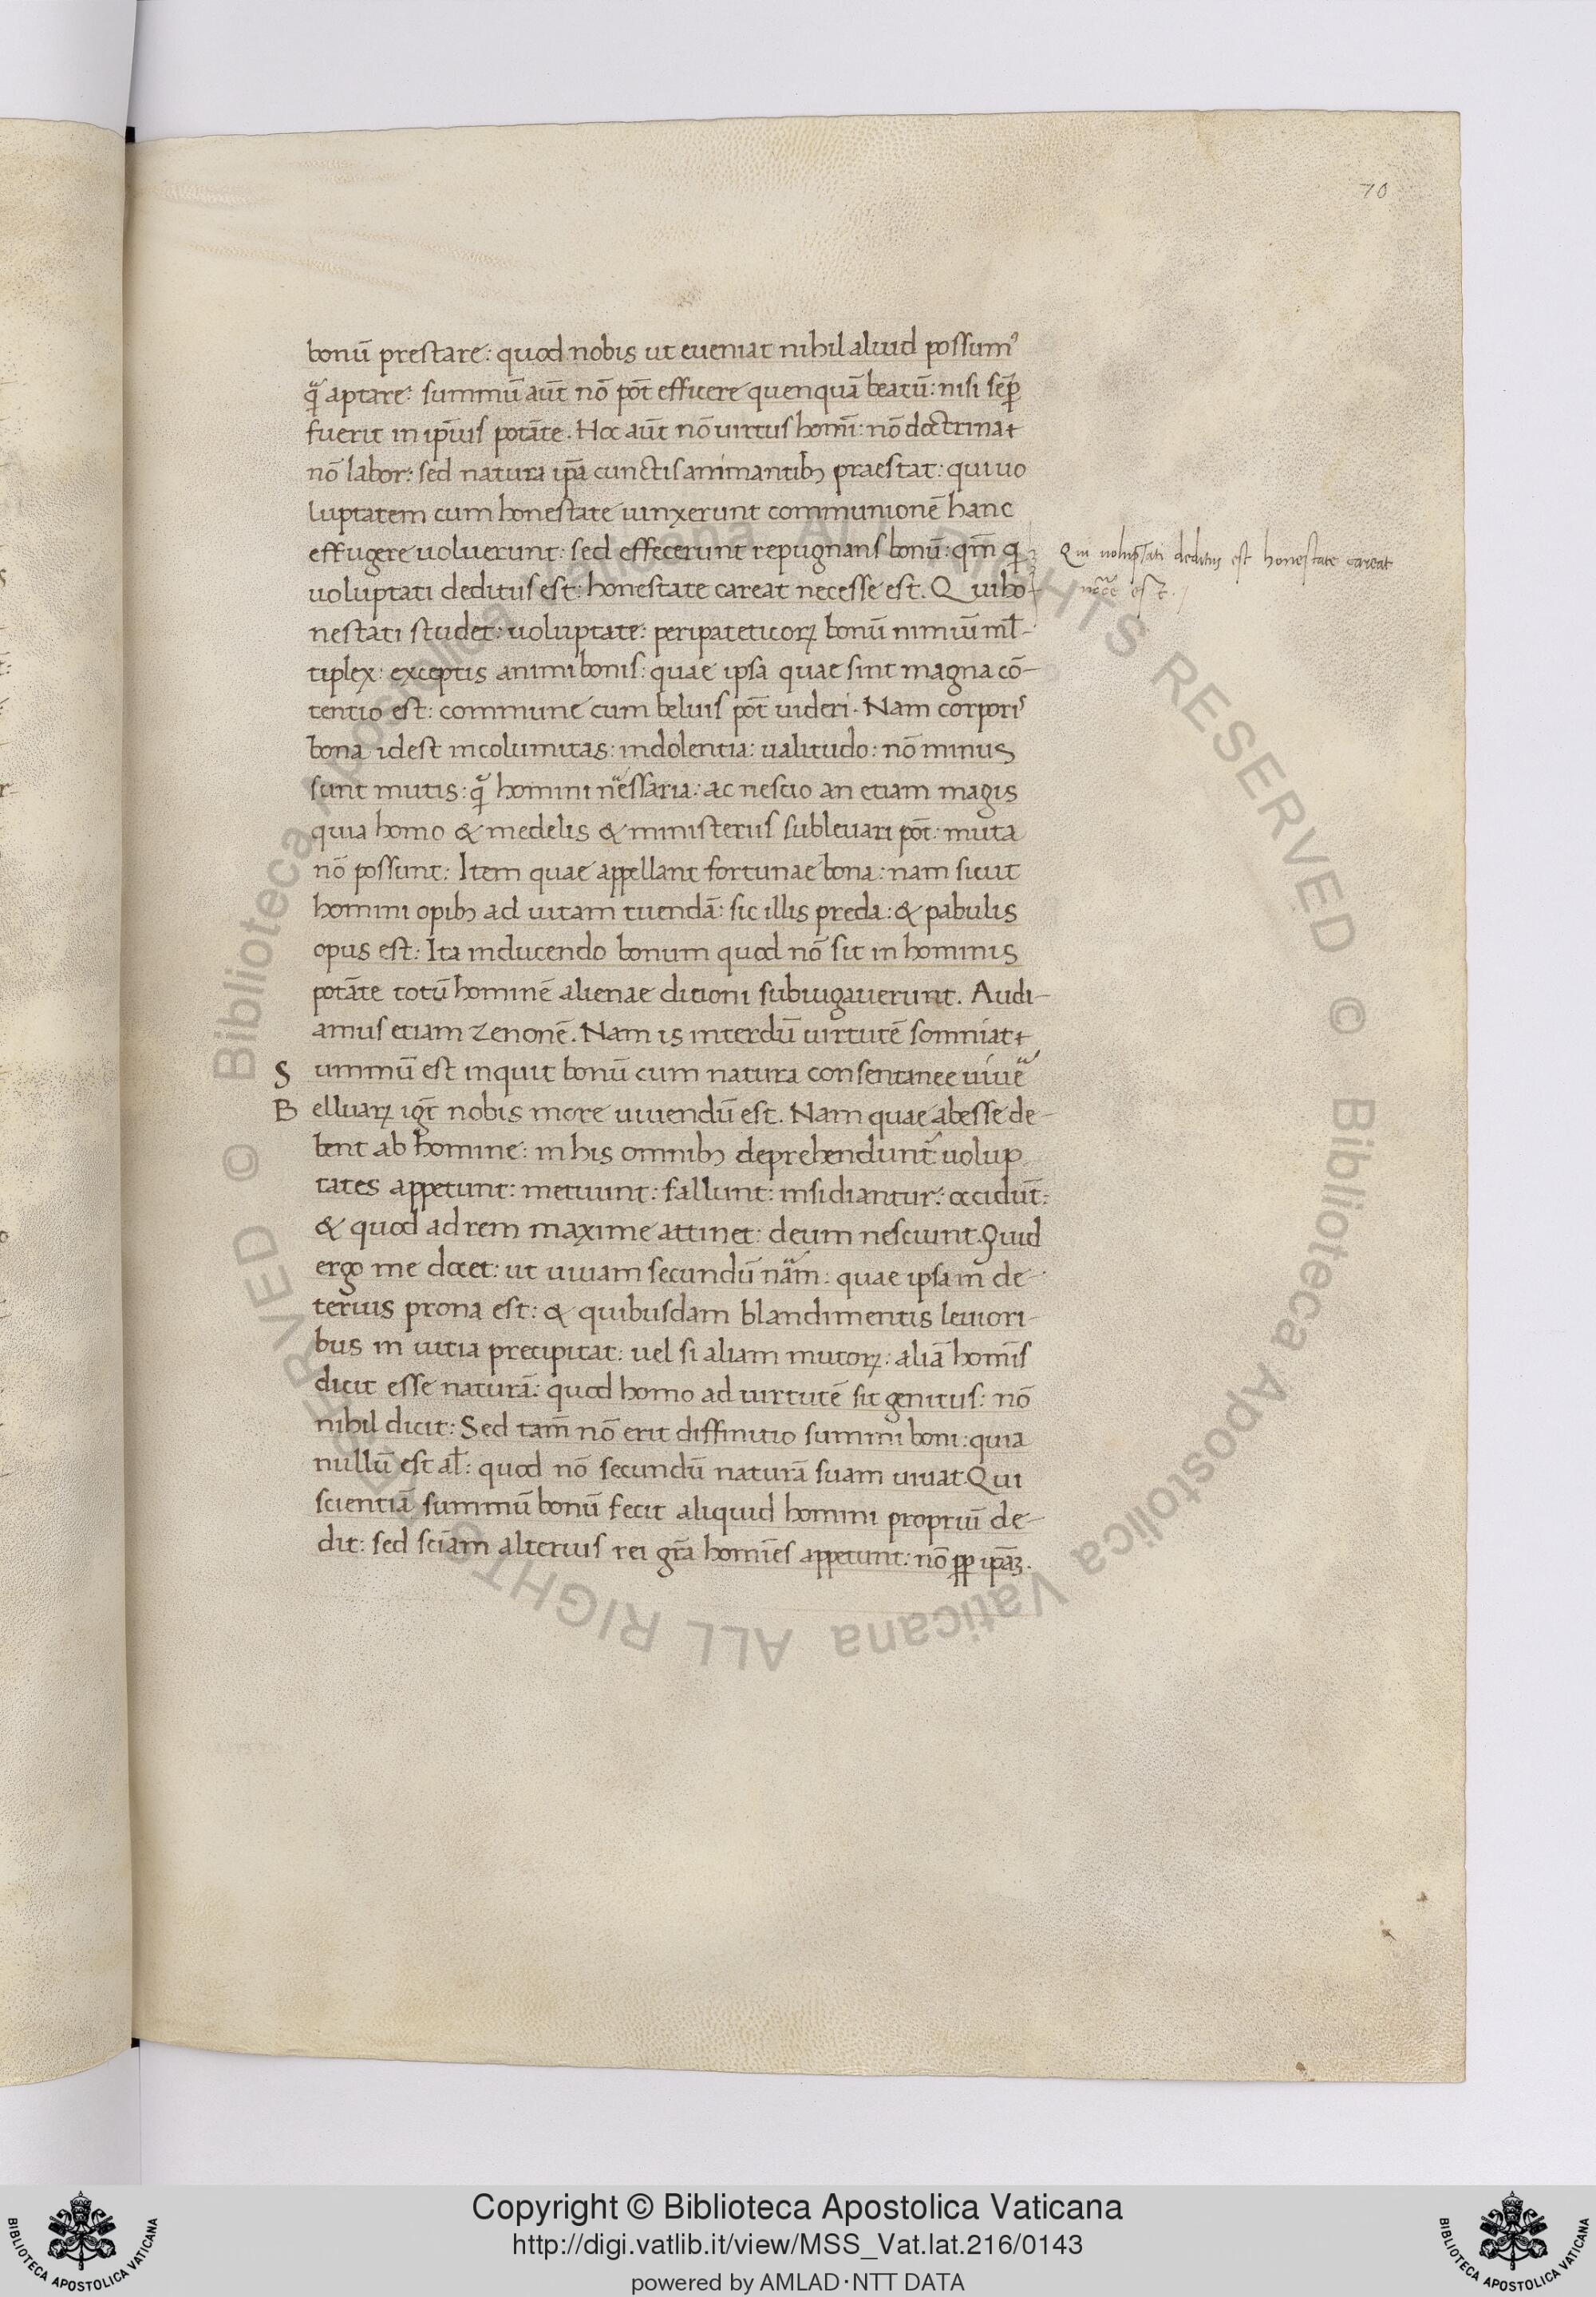 70
bonū prestare: quod nobis ut eueniat nihil aliud possumꝰ
q̃ aptare: summū aūt nō pōt efficere quenquā beatū: nisi sēp
fuerit in ipīus potāte. Hoc aūt nō uirtus homī: nō doctrina ⁊
nō labor: sed natura ipā cunctis animantibȝ praestat: qui uo
luptatem cum honestate iunxerunt communionē hanc
effugere uoluerunt: sed effecerunt repugnans bonū: qm̄ q
uoluptati deditus est: honestate careat necesse est. Qui ho-
Qui uoluptati deditus est honestate careat
nēcē est.
nestati studet: uoluptate: peripateticoꝝ bonū nimiū ml̄-
tiplex: exceptis animi bonis: quae ipsa quae sint magna cō-
tentio est: commune cum beluis pōt uideri. Nam corporis
bona idest incolumitas: indolentia: ualitudo: nō minus
sunt mutis: q̃ homini nēssaria: ac nescio an etiam magis
quia homo & medelis & ministeriis subleuari pōt: muta
nō possunt: Item quae appellant fortunae bona: nam sicut
homini opibȝ ad uitam tuendā: sic illis preda: & pabulis
opus est: Ita inducendo bonum quod nō sit in hominis
potāte totū hominē alienae ditioni subiugauerunt. Audi-
amus etiam zenonē. Nam is interdū uirtutē somniat ⁊
S ummū est inquit bonū cum natura consentanee uiuē
B elluaꝝ igt̄ nobis more uiuendū est. Nam quae abesse de-
bent ab homine: in his omnibȝ deprehendunt̄ uolup
tates appetunt: metuunt: fallunt: insidiantur: occidūt:
& quod ad rem maxime attinet: deum nesciunt. Quid
ergo me docet: ut uiuam secundū nām: quae ipsa in de-
terius prona est: & quibusdam blandimentis leuiori-
bus in uitia precipitat: uel si aliam mutoꝝ: aliā homīs
dicit esse naturā: quod homo ad uirtutē sit genitus: nō
nihil dicit: Sed tam̄ nō erit diffinitio summi boni: quia
nullū est al̄: quod nō secundū naturā suam uiuat. Qui
scientiā summū bonū fecit aliquid homini propriū de-
dit: sed sciām alterius rei grā homīes appetunt: nō ꝓp ipāȝ.
Copyright © Biblioteca Apostolica Vaticana
http://digi.vatlib.it/view/MSS_Vat.lat.216/0143
powered by AMLAD·NTT DATA
BIBLIOTECA APOSTOLICA VATICANA
BIBLIOTECA APOSTOLICA VATICANA
© Biblioteca Apostolica Vaticana ALL RIGHTS RESERVED © Biblioteca Apostolica Vaticana ALL RIGHTS RESERVED